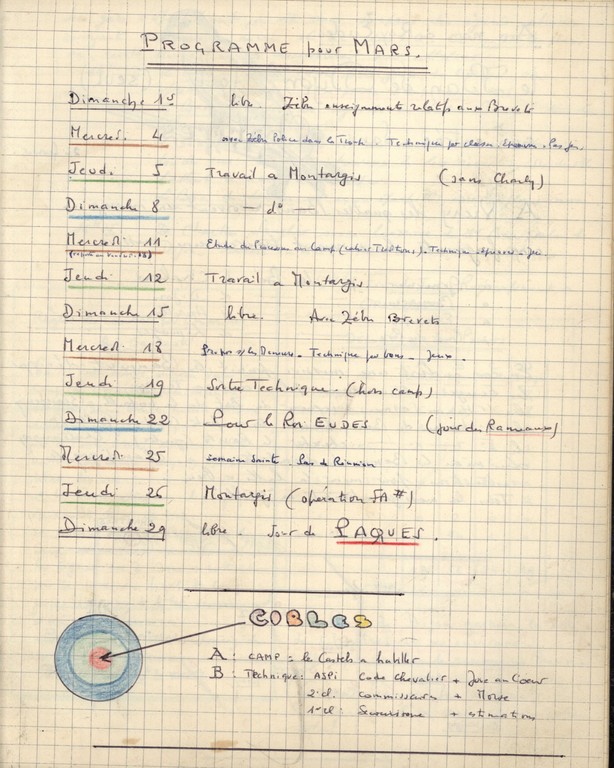 PROGRAMME pour MARS.
Dimanche 1er libre. Zélu enseignements relatifs aux Brevets
Mercred. 4 avec Zélu Police dans le Technique par classe. Epreuves.
Jeudi 5 Travail a Montargis (sans Charly)
Dimanche 8 — d° —
Mercredi 11 Etude du au Camp (cahier Traditions). Technique. Jeu.
Jeudi 12 Travail a Montargis
Dimanche 15 libre. Avec Zélu Brevets
Mercredi 18 Technique par bons. Jeux.
Jeudi 19 Sortie Technique. (hors camp)
Dimanche 22 Pour le Roi EUDES (jour des Rameaux)
Mercredi 25 Semaine Sainte. Pas de Réunion
Jeudi 26 Montargis (opération FA #)
Dimanche 29 libre. Jour de PAQUES.
CIBLES
A : CAMP = le Castels a habiller
B : Technique: ASPi Code Chevalier + Jure au Coeur
2e cl. commissaires + Morse
1e cl. Secourisme + estimations